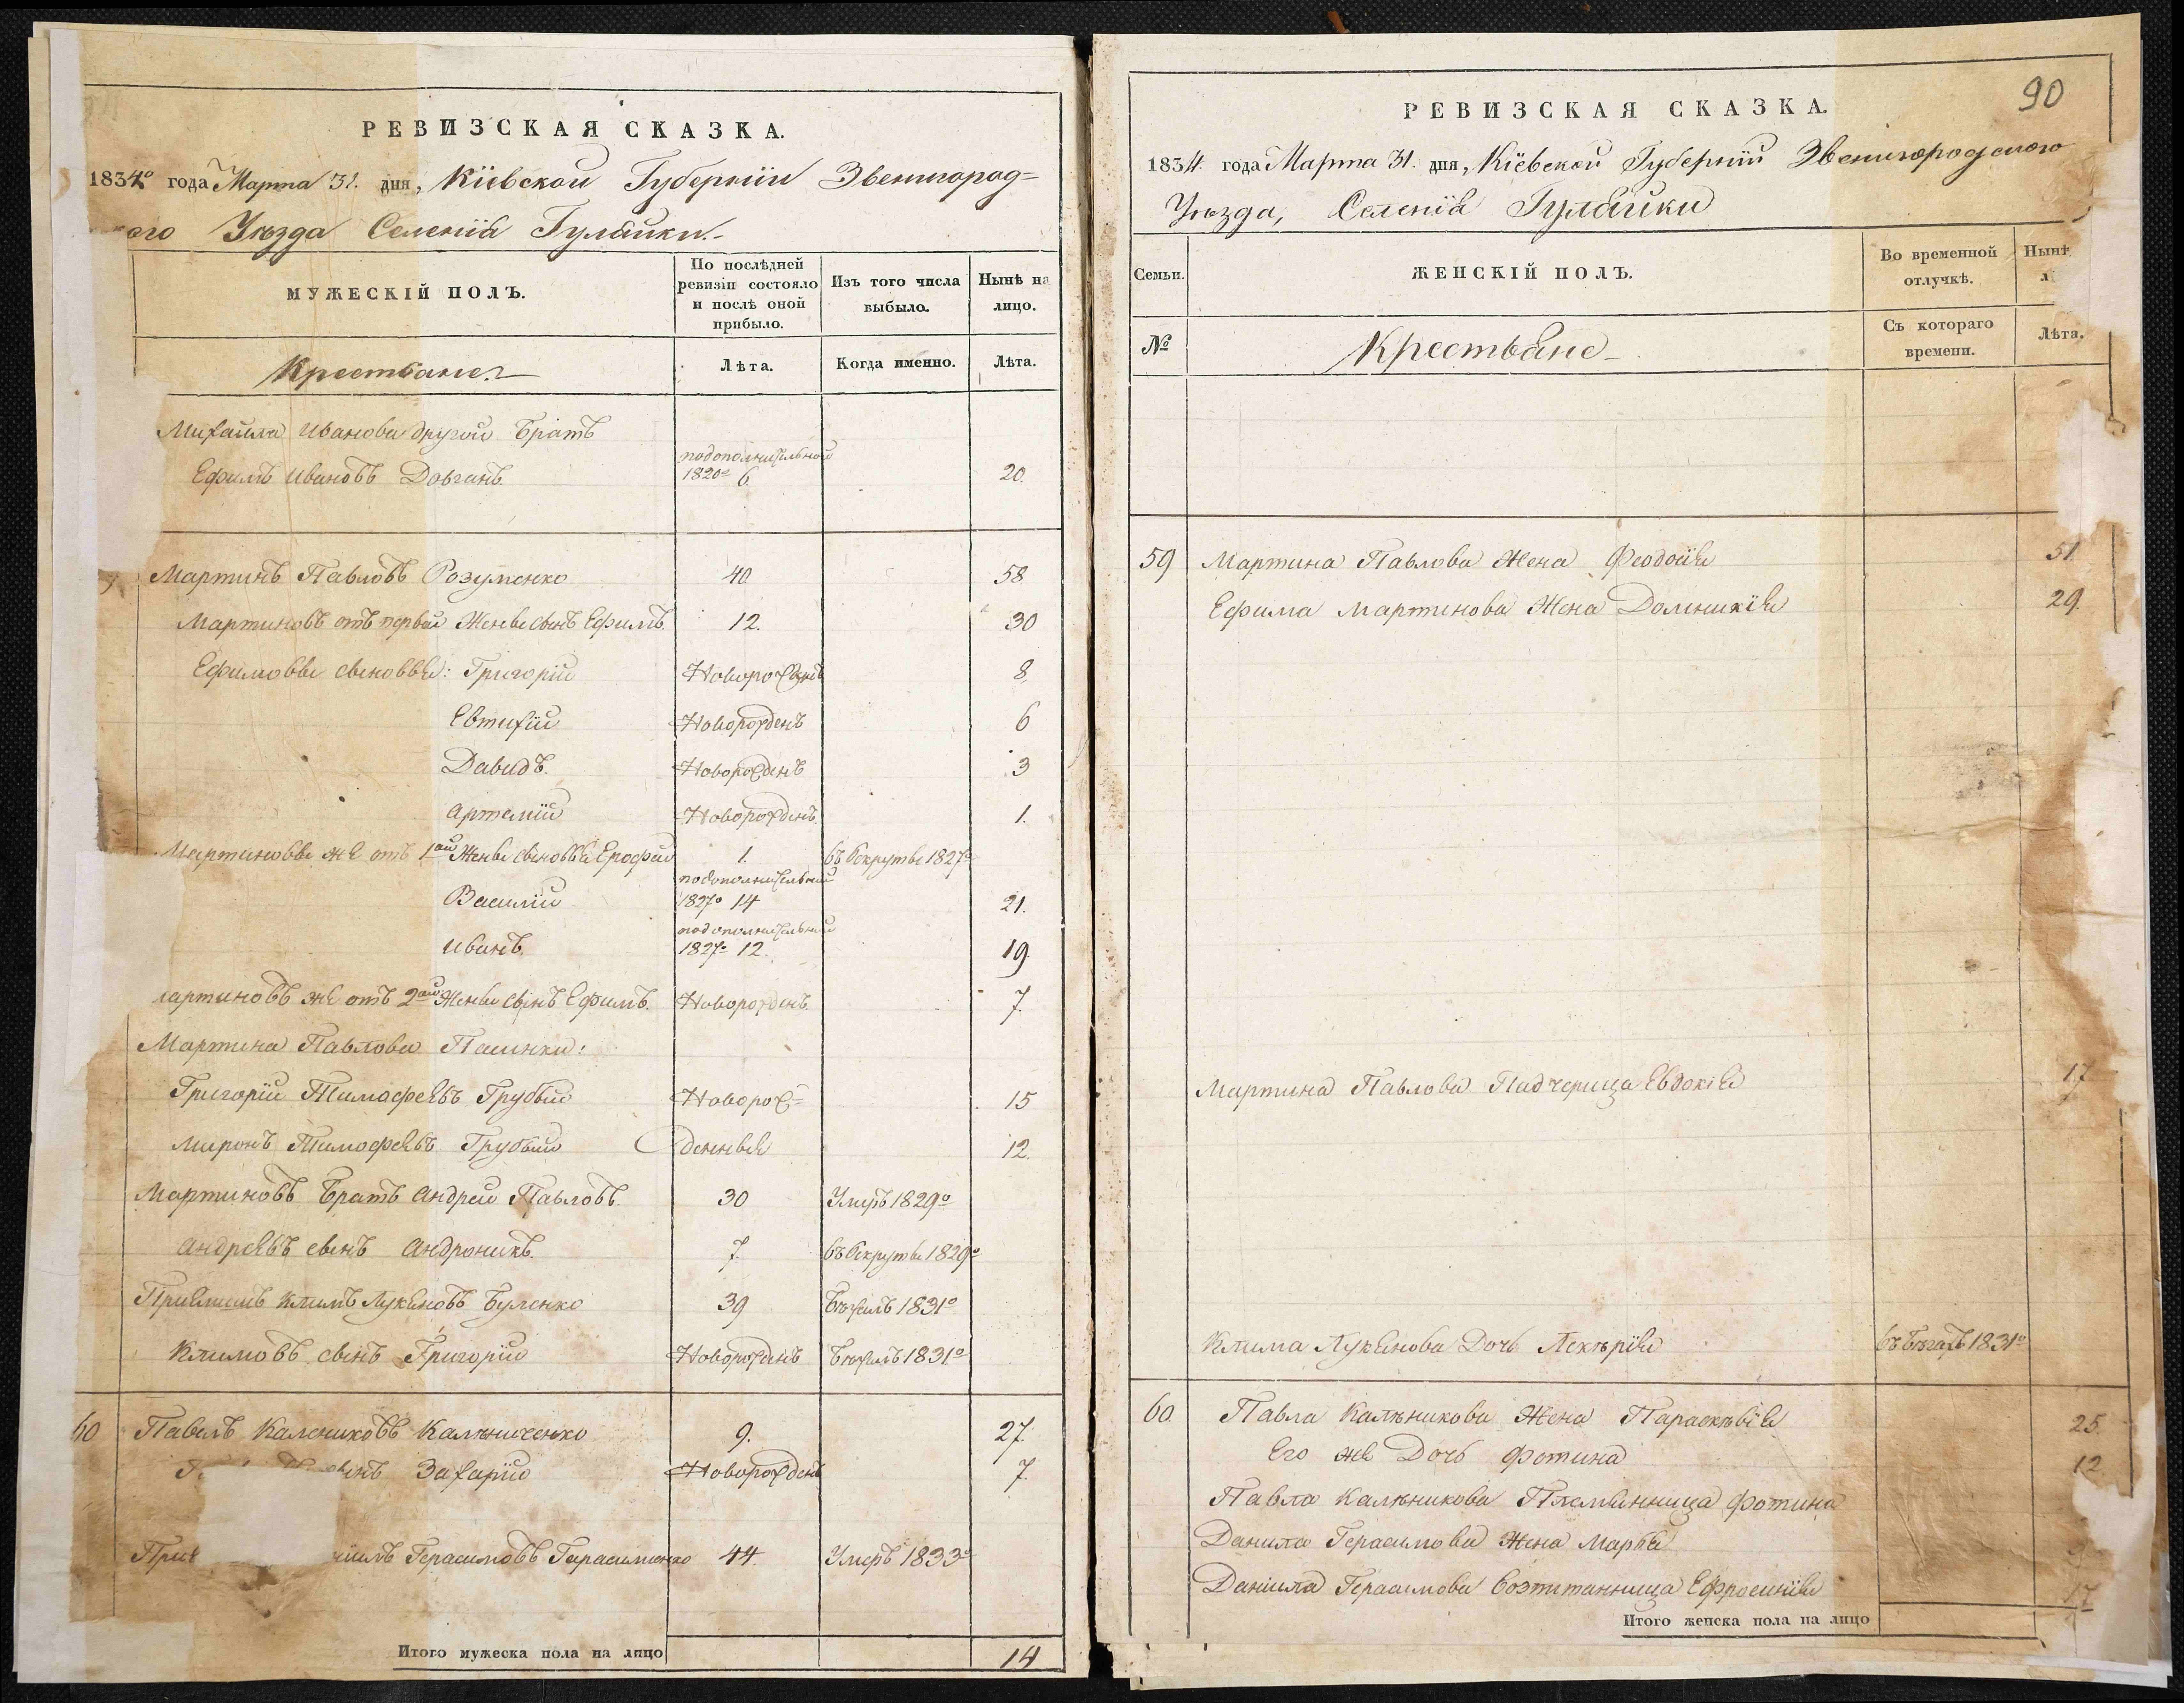 РЕВИЗСКАЯ СКАЗКА.
1834º года Марта 31. дня, Кіевской Губерніи Звенигород=
кого Уѣзда Селенія Гулайки.
МУЖЕСКІЙ ПОЛЪ.
По послѣдней ревизіи состояло и послѣ оной прибыло.
Изъ того числа выбыло.
Нынѣ на лицо.
Крестьяне.
Лѣта.
Когда именно.
Лѣта.
Михайла Иванова другой братъ
Ефимъ Ивановъ Довгань. подополнительной 1820º 6. 20.
Мартинъ Павловъ Розуменко 40 58.
Мартиновъ отъ первой Жены сынъ Ефимъ. 12. 30
Ефимовы сыновья: Григорій Новорожденъ 8.
Евтихій Новорожденъ 6
Давидъ. Новорожденъ 3
Артемій Новорожденъ. 1.
Мартиновы же отъ 1ой Жены сыновья Ерофей 1. въ рекруты 1827º
Василій подополнительной 1827º 14 21.
Иванъ. подополнительной 1827º 12. 19.
артиновъ же отъ 2ой Жены сынъ Ефимъ. Новорожденъ. 7.
Мартина Павлова Пасинки:
Григорій Тимофеевъ Грубый Новорож= 15
Миронъ Тимофеевъ Грубый денные 12.
Мартиновъ братъ Андрей Павловъ. 30 Умеръ 1829º
Андреевъ сынъ Андроникъ. 7. въ рекруты 1829º
Приемышъ Климъ Лукьяновъ Буленко 39 Бѣжалъ 1831º
Климовъ сынъ Григорій Новорожденъ Бѣжалъ 1831º
60 Павелъ Калениковъ Калѣниченко 9. 27.
сынъ Захарій Новорожденъ 7.
Герасимовъ Гарасименко 44. Умеръ 1833º
Итого мужеска пола на лицо 14
90
РЕВИЗСКАЯ СКАЗКА.
1834. года Марта 31. дня, Кіевской Губерніи Звенигородского
Уѣзда, Селенія Гулайки
Семьи.
ЖЕНСКІЙ ПОЛЪ.
Во временной отлучкѣ.
Нынѣ
№
Крестьяне
Съ котораго времени.
Лѣта.
59 Мартина Павлова Жена Феодосія 51.
Ефима Мартинова Жена Домникія 29.
Мартина Павлова Падчерица Евдокія 17
Клима Лукьянова Дочь Лекерія въ бѣгахъ 1831º
60. Павла Калѣникова Жена Параскевія 25.
Его же Дочь Фотина 12.
Павла Калѣникова Племянница Фотина
Данила Герасимова Жена Марья
Даніила Герасимова Воспитанница Ефросинія 17
Итого женска пола на лицо